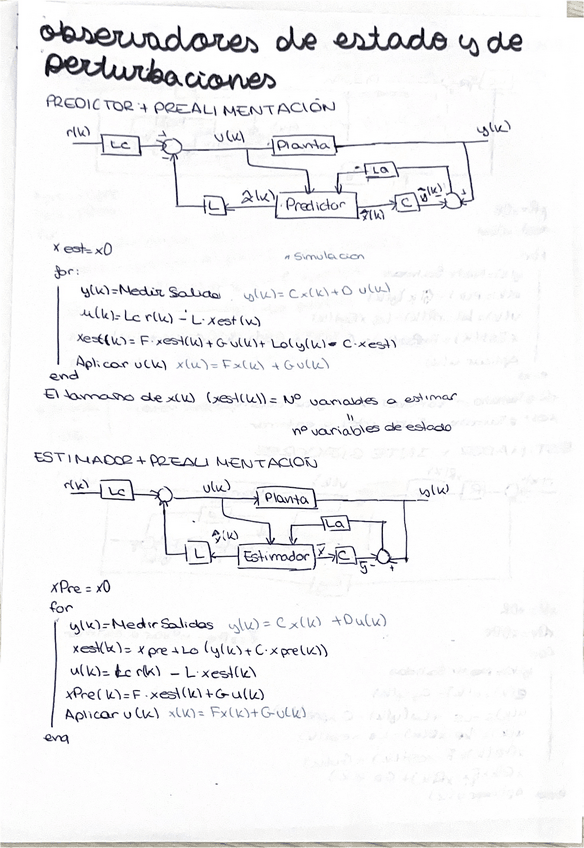 observadores de estado y de
perturbaciones
PREDICTOR + PREALIMENTACIÓN
r(k) Lc + - u(k) Planta y(k)
La
L x̂(k) Predictor x̂(k) C ŷ(k) - +
xest=x0
* Simulación
for:
y(k)=Medir Salida y(k)=Cx(k)+D u(k)
u(k)=Lc r(k) - L·xest(k)
xest(k)=F·xest(k)+G·u(k)+Lo(y(k)-C·xest)
Aplicar u(k) x(k)=Fx(k)+Gu(k)
end
El tamaño de x(k) (xest(k))= Nº variables a estimar
"
nº variables de estado
ESTIMADOR + PREALIMENTACIÓN
r(k) Lc u(k) Planta y(k)
La
L x̂(k) Estimador x̄ C ȳ - +
xPre = x0
for
y(k)=Medir Salidas y(k)=Cx(k)+Du(k)
xest(k)= xpre+Lo (y(k)+C·xpre(k))
u(k)=Lc r(k) - L·xest(k)
xPre(k)=F·xest(k)+G·u(k)
Aplicar u(k) x(k)=Fx(k)+G·u(k)
end